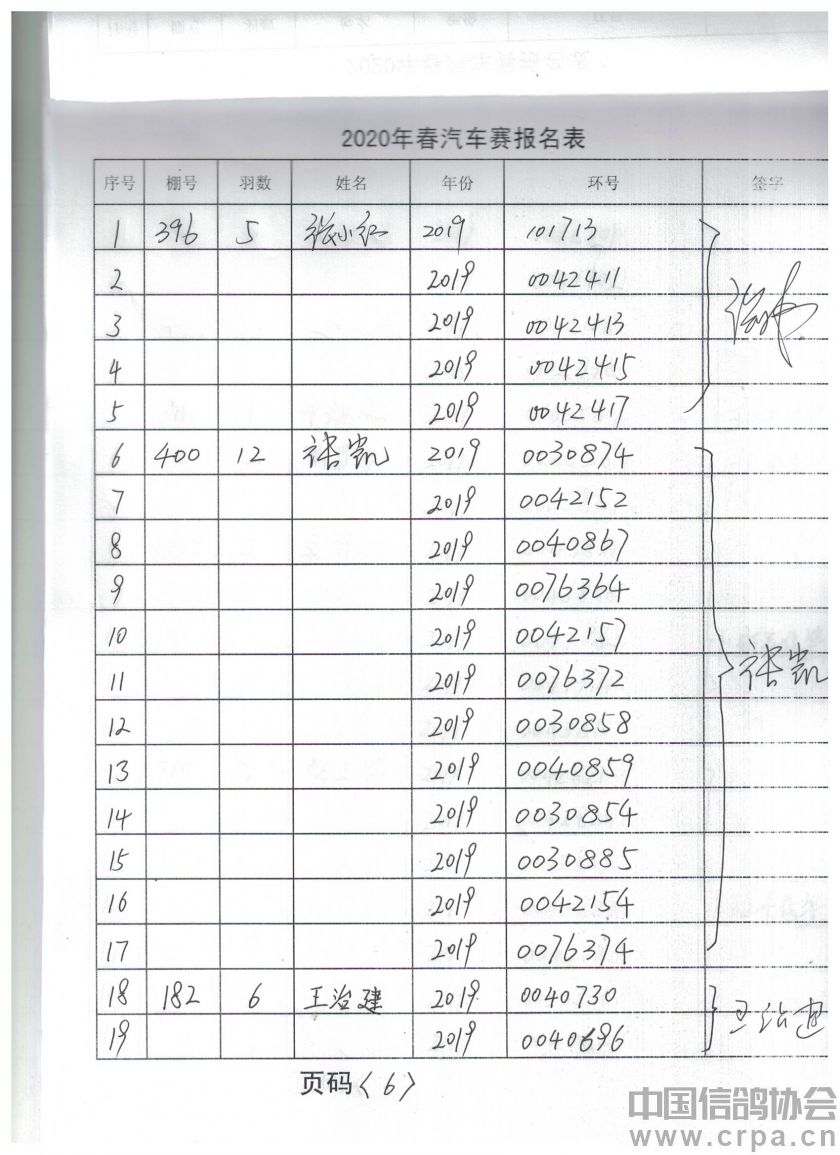 2020年春汽车赛报名表
序号 棚号 羽数 姓名 年份 环号 签字
1 396 5 张小红 2019 101713
2 2019 0042411
3 2019 0042413
4 2019 0042415
5 2019 0042417
6 400 12 张凯 2019 0030874
7 2019 0042152
8 2019 0040867
9 2019 0076364
10 2019 0042157
11 2019 0076372 张凯
12 2019 0030858
13 2019 0040859
14 2019 0030854
15 2019 0030885
16 2019 0042154
17 2019 0076374
18 182 6 王治建 2019 0040730 王治建
19 2019 0040696
页码〈6〉
中国信鸽协会
www.crpa.cn